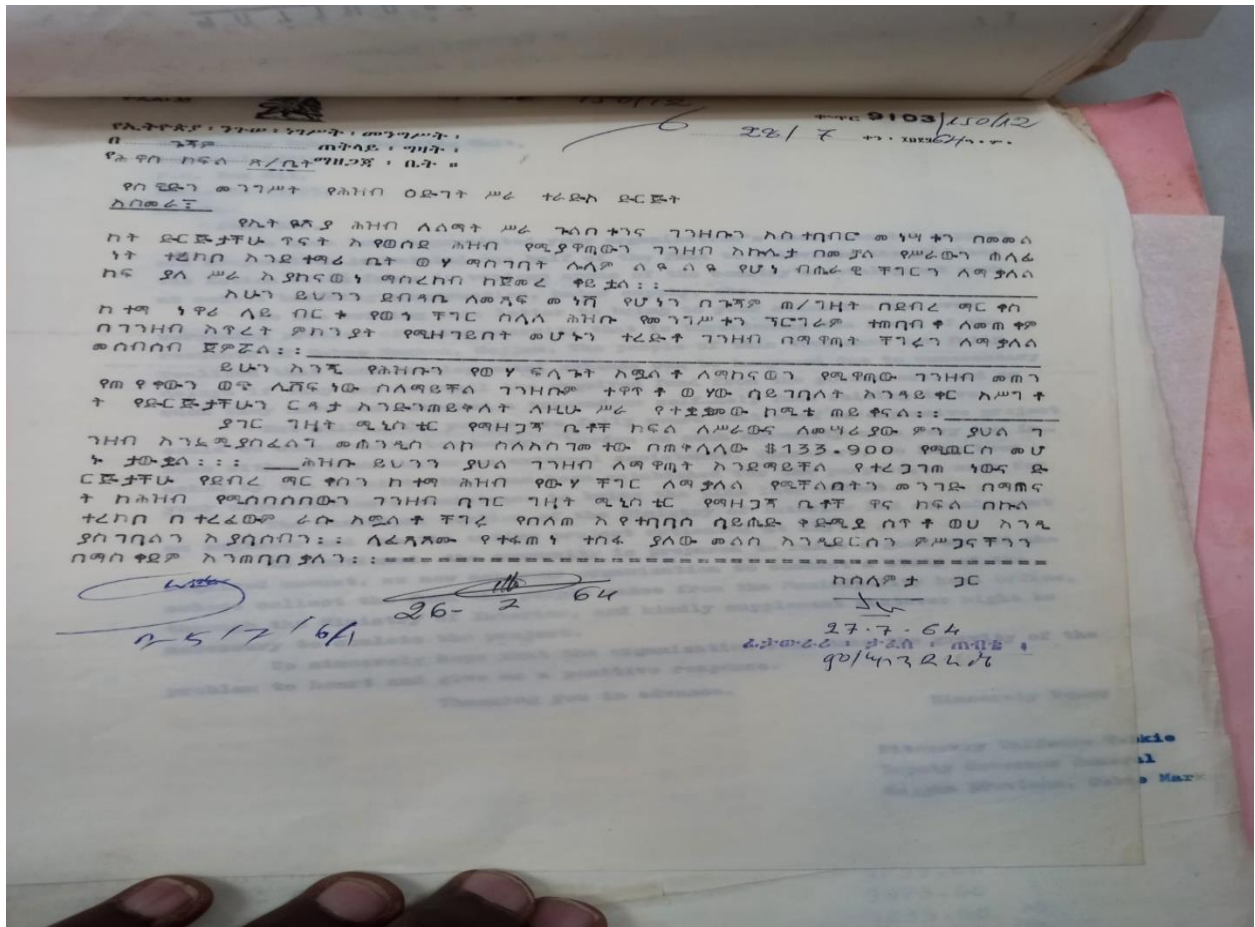 ቍጥር 9103/150/12
28/7 ቀን ፲፱፻፷64/ዓ.ም.
የኢትዮጵያ ፡ ንጉሠ ፡ ነገሥት ፡ መንግሥት ፡
በ ጎጃም ጠቅላይ ፡ ግዛት ፡
የሕዝብ ክፍል ጽ/ቤት ማዘጋጃ ፡ ቤት ።
የስዊድን መንግሥት የሕዝብ ዕድገት ሥራ ተራድኦ ድርጅት
አስመራ፤
የኢትዮጵያ ሕዝብ ለልማት ሥራ ጉልበቀንና ገንዘቡን አስተባብሮ መነሣቀን በመመል
ከት ድርጅታችሁ ጥናት እየወሰደ ሕዝብ የሚያዋጣውን ገንዘብ እኩሌታ በመቻል የሥራውን ጠለፊ
ነት ተረክቦ እንደ ተማሪ ቤት ወሃ ማስገባት ሌላም ልዩ ልዩ የሆነ ብሔራዊ ችግርን ለማቃለል
ከፍ ያለ ሥራ እያከናወነ ማስረከብ ከጀመረ ቀይቷል፡፡
አሁን ይህንን ደብዳቤ ለመጻፍ መነሻ የሆነን በጎጃም ጠ/ግዛት በደብረ ማርቀስ
ከተማ ነዋሪ ላይ ብርቱ የወኃ ችግር ስላለ ሕዝቡ የመንግሥቀን ፕሮግራም ተጠባብቆ ለመጠቀም
በገንዘብ እጥረት ምክንያት የሚዘገይበት መሆኑን ተረድቶ ገንዘብ በማዋጣት ችግሩን ለማቃለል
መሰብሰብ ጀምሯል፡፡
ይሁን እንጂ የሕዝቡን የወሃ ፍላጎት አሟልቶ ለማከናወን የሚዋጣው ገንዘብ መጠን
የጠየቀውን ወጭ ሊሸፍነው ስለማይችል ገንዘቡም ተዋጥቶ ወሃው ሳይገባለት እንዳይቀር አሥግቶ
ት የድርጅታችሁን ርዳታ እንድንጠይቅለት ለዚሁ ሥራ የተቋቋመው ከሚቴ ጠይቀናል፡፡
ያገር ግዛት ሚኒስቴር የማዘጋጃ ቤቶች ክፍል ለሥራውና ለመሣሪያው ምን ያህል ገ
ንዘብ እንደሚያስፈልግ መሐንዲስ ልኮ ስለአስገመተው በጠቅላላው $133.900 የሚጨርስ መሆ
ኑ ታውቋል፡፡፡ ሕዝቡ ይህንን ያህል ገንዘብ ለማዋጣት እንደማይችል የተረጋገጠ ነውና ድ
ርጅታችሁ የደብረ ማርቀስን ከተማ ሕዝብ የውሃ ችግር ለማቃለል የሚቻልበትን መንገድ በማጠና
ት ከሕዝብ የሚሰበሰበውን ገንዘብ ባገር ግዛት ሚኒስቴር የማዘጋጃ ቤቶች ዋና ክፍል በኩል
ተረክቦ በተረፈውም ራሱ አሟልቶ ችግሩ የበለጠ እየተባባሰ ሳይሔድ ቅድሚያ ሰጥቶ ወሀ እንዲ
ያስገባልን እያሳሰብን፡፡ ለፈጻጸሙ የተፋጠነ ተስፋ ያለው መልስ እንዲደርሰን ምሥጋናችንን
በማስቀደም እንጠባበቃለን፡፡
ከሰላምታ ጋር
26-7 64
25/7/64
27.7.64
ፊታውራሪ ፡ ታፈሰ ፡ ጠብቄ ፡